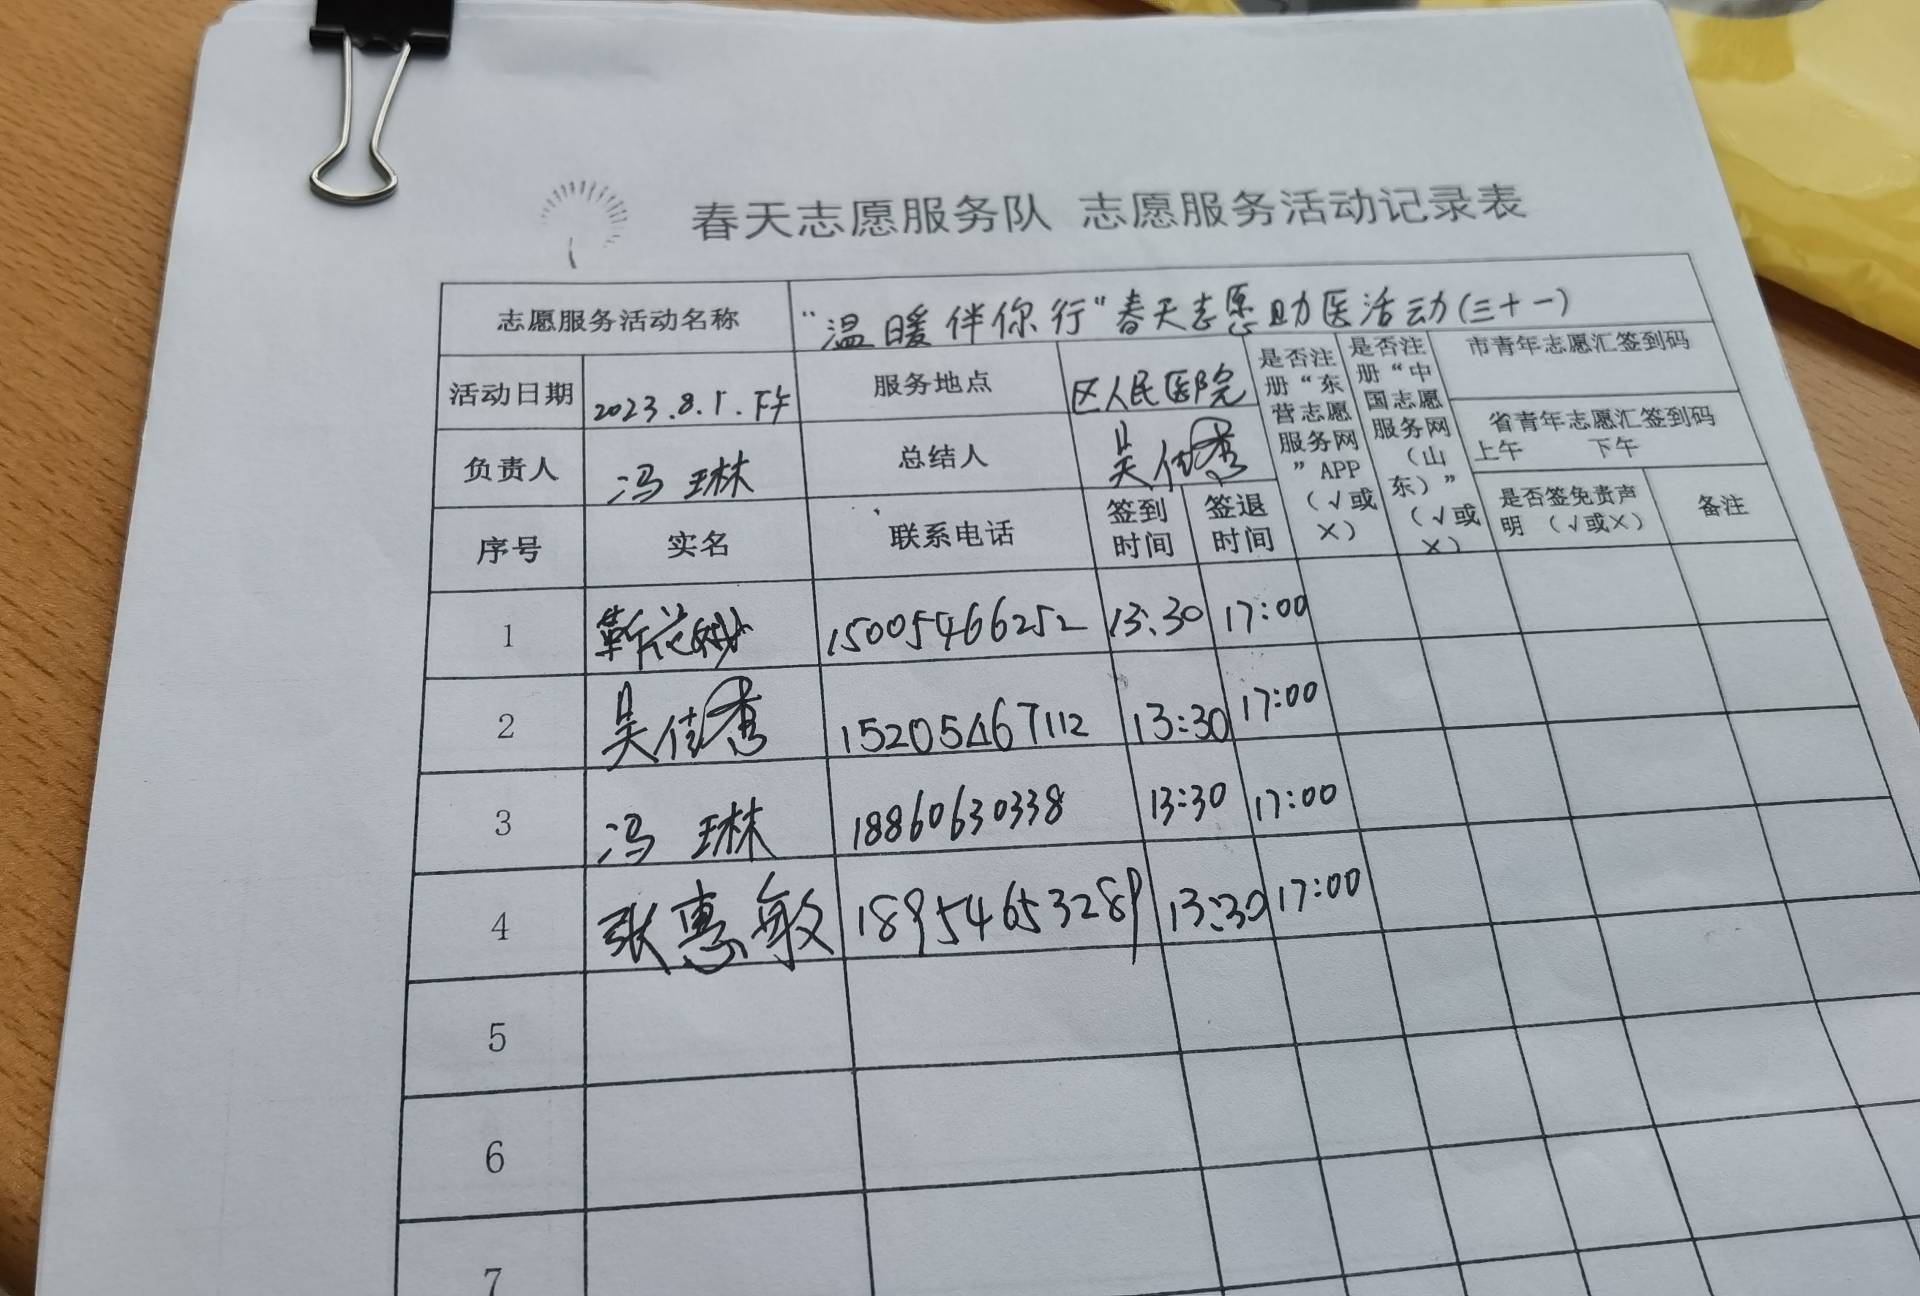 春天志愿服务队 志愿服务活动记录表
志愿服务活动名称 “温暖伴你行”春天志愿助医活动(三十一)
活动日期 2023.8.1.下午 服务地点 区人民医院
负责人 冯琳 总结人 吴佳秀
是否注册“东营志愿服务网”APP(√或×)
是否注册“中国志愿服务网(山东)”(√或×)
市青年志愿汇签到码
省青年志愿汇签到码
上午 下午
序号 实名 联系电话 签到时间 签退时间 是否签免责声明(√或×) 备注
1 靳花娥 15005466252 13:30 17:00
2 吴佳秀 15205467112 13:30 17:00
3 冯琳 18860630338 13:30 17:00
4 张惠敏 18954653289 13:30 17:00
5
6
7